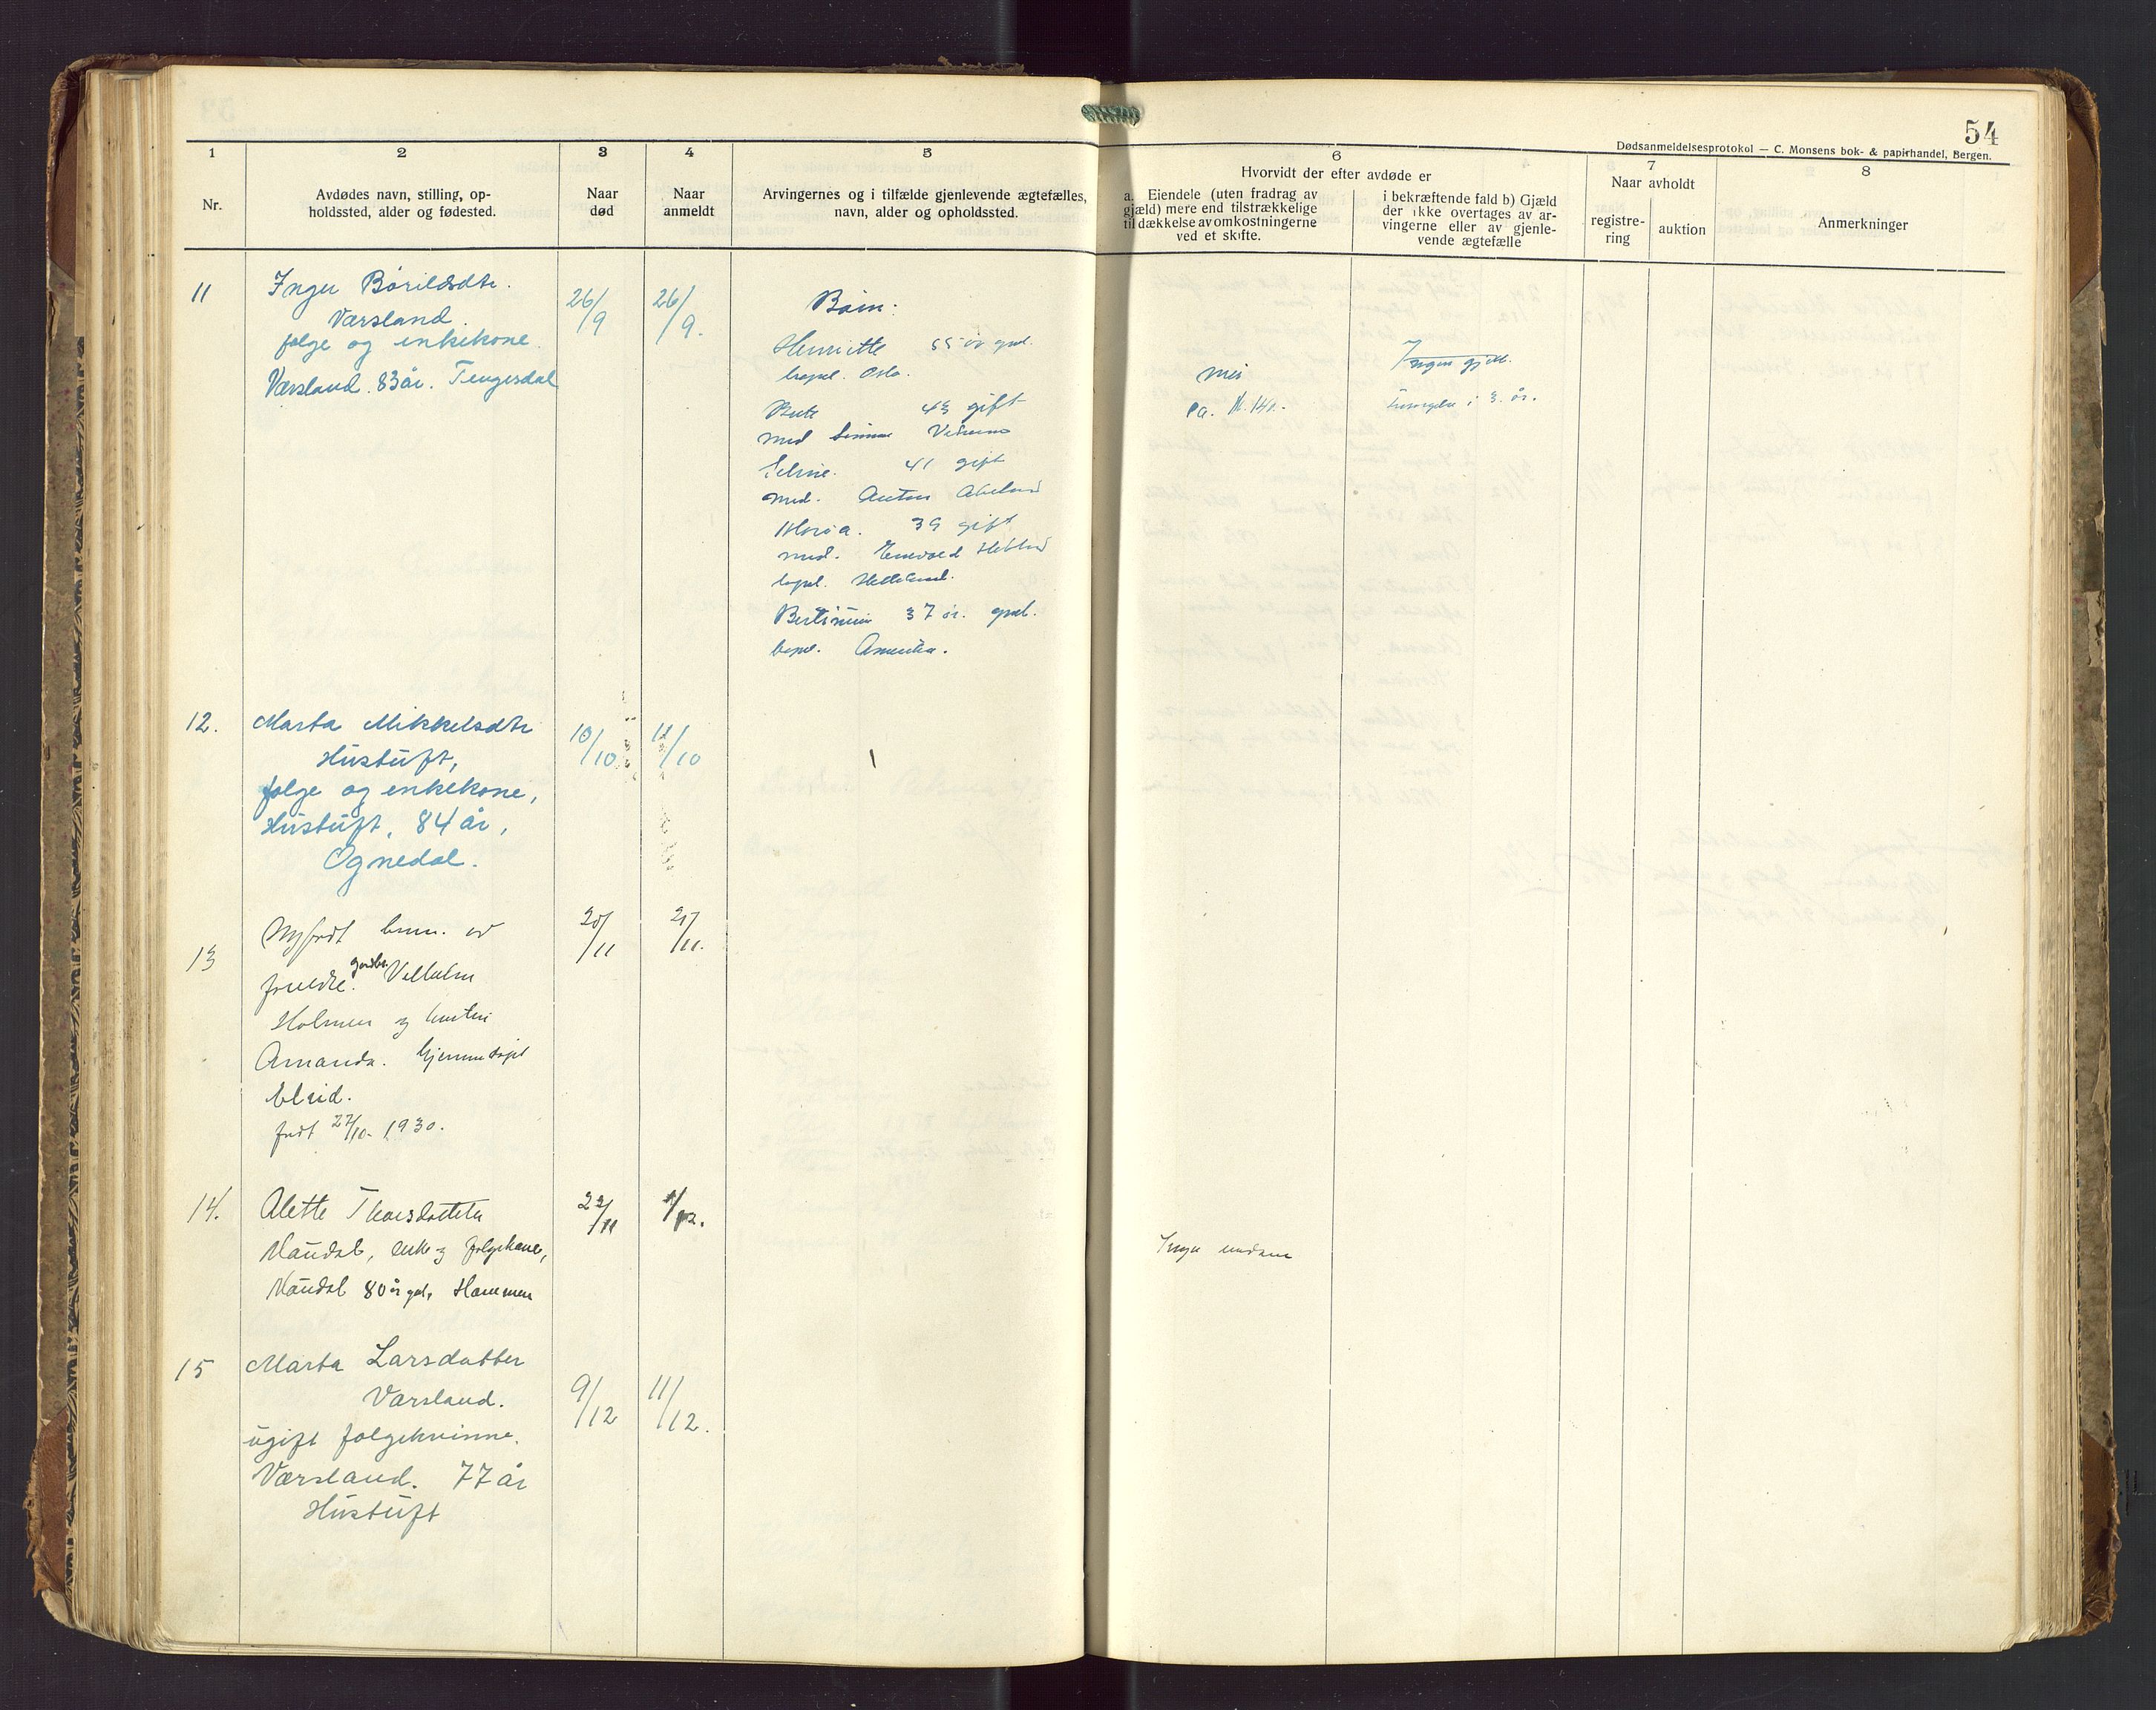 54
Dødsanmeldelsesprotokol — C. Monsens bok- & papirhandel, Bergen.
1
2
3
4
5
6
7
8
Nr.
Avdødes navn, stilling, op-
holdssted, alder og fødested.
Naar
død
Naar
anmeldt
Arvingernes og i tilfælde gjenlevende ægtefælles,
navn, alder og opholdssted.
Hvorvidt der efter avdøde er
a. Eiendele (uten fradrag av
gjæld) mere end tilstrækkelige
til dækkelse av omkostningerne
ved et skifte.
i bekræftende fald b) Gjæld
der ikke overtages av ar-
vingerne eller av gjenle-
vende ægtefælle
Naar avholdt
registre-
ring
auktion
Anmerkninger
11
Inger Børildsdtr.
Værsland
folge og enkekone
Værsland. 83 år. Tengesdal
26/9
26/9.
Børn:
Henriette 55 år
Oslo.
43 gift
med
41 gift
med. Anton
39 gift
med.
Helleland.
37 år.
Amerika.
Ingen gjeld.
i 3. år.
12.
Marta Mikkelsdtr
Hustuft,
folge og enkekone,
Hustuft, 84 år,
Ognedal.
10/10
11/10
13
Nyfødt barn. av
gardbr.
Vilhelm
Holmen og hustru
Amanda. Hjemmedøpt
født 27/10. 1930.
/11
/11.
14.
Alette Thorsdotter
Maudal, enke og folgekone,
Maudal 80 år gml, Hammen
22/11
1/12.
Ingen
15
Marta Larsdatter
Værsland.
ugift folgekvinne.
Værsland. 77 år
Hustuft
9/12
11/12.